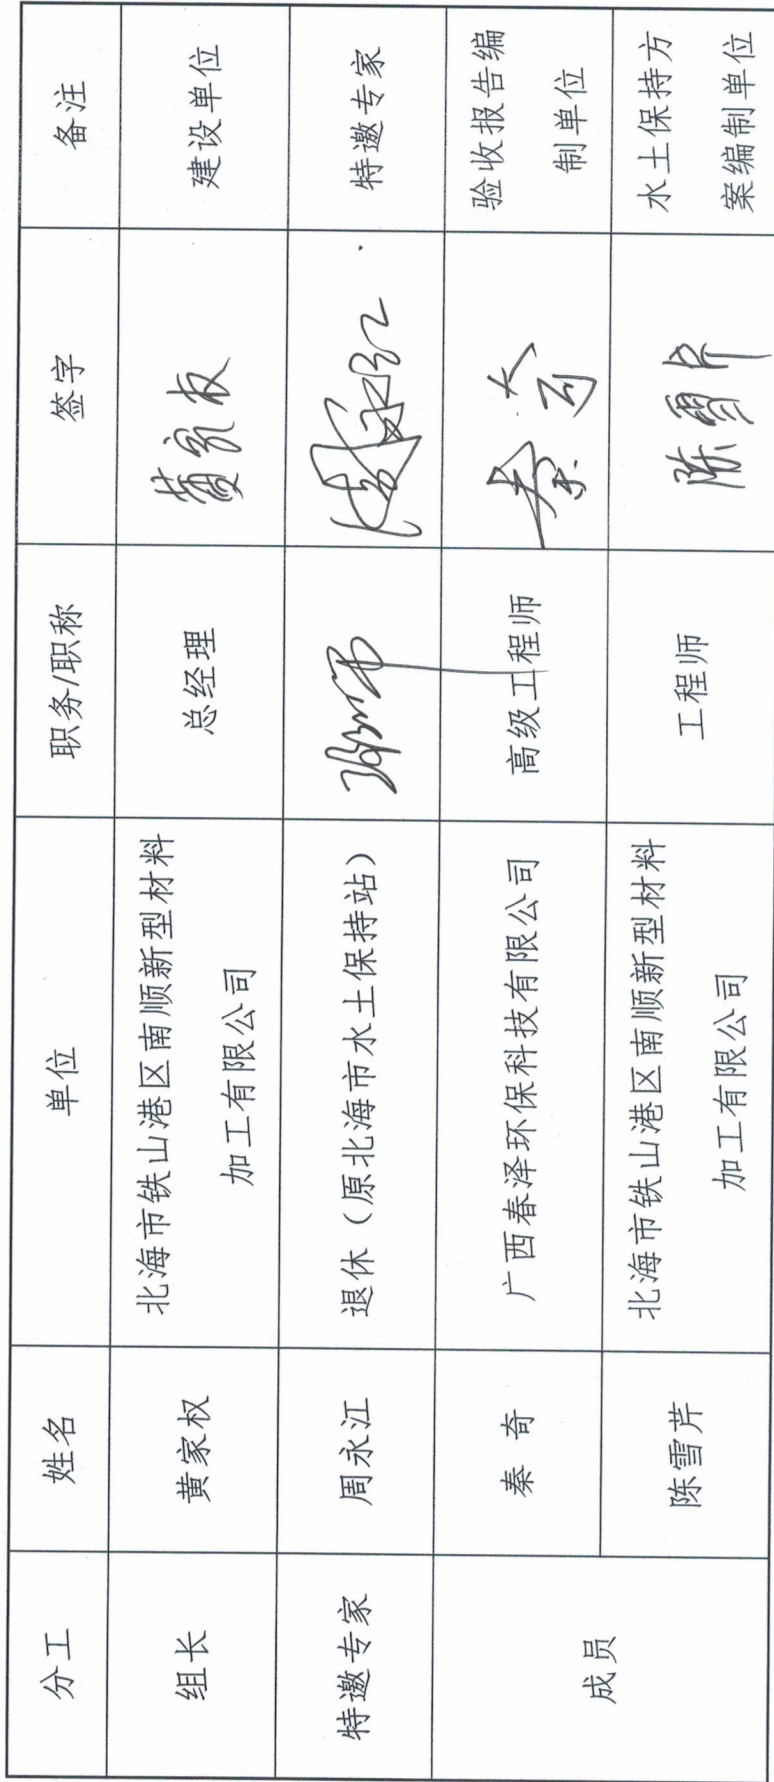 分工 姓名 单位 职务/职称 签字 备注
组长 黄家权 北海市铁山港区南顺新型材料 总经理 黄家权 建设单位
加工有限公司
特邀专家 周永江 退休（原北海市水土保持站） 周永江 特邀专家
成员 秦奇 广西春泽环保科技有限公司 高级工程师 秦奇 验收报告编
制单位
陈雪芹 北海市铁山港区南顺新型材料 工程师 陈雪芹 水土保持方
加工有限公司 案编制单位